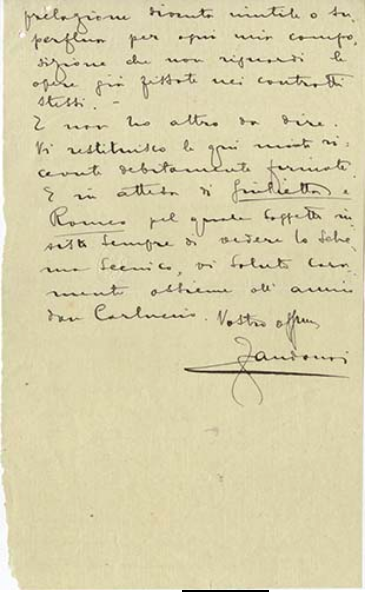 prelazione diventa inutile o su-
perflua per ogni mia compo-
sizione che non riguardi le
opere già fissate nei contratti
stessi. –
E non ho altro da dire.
Vi restituisco le qui unite ri-
cevute debitamente firmate.
E in attesa di Giulietta e
Romeo pel quale soggetto in-
sisto sempre di vedere lo sche-
ma scenico, vi saluto cara-
mente assieme all' amico
don Carlucio. Vostro affmo
Zandonai